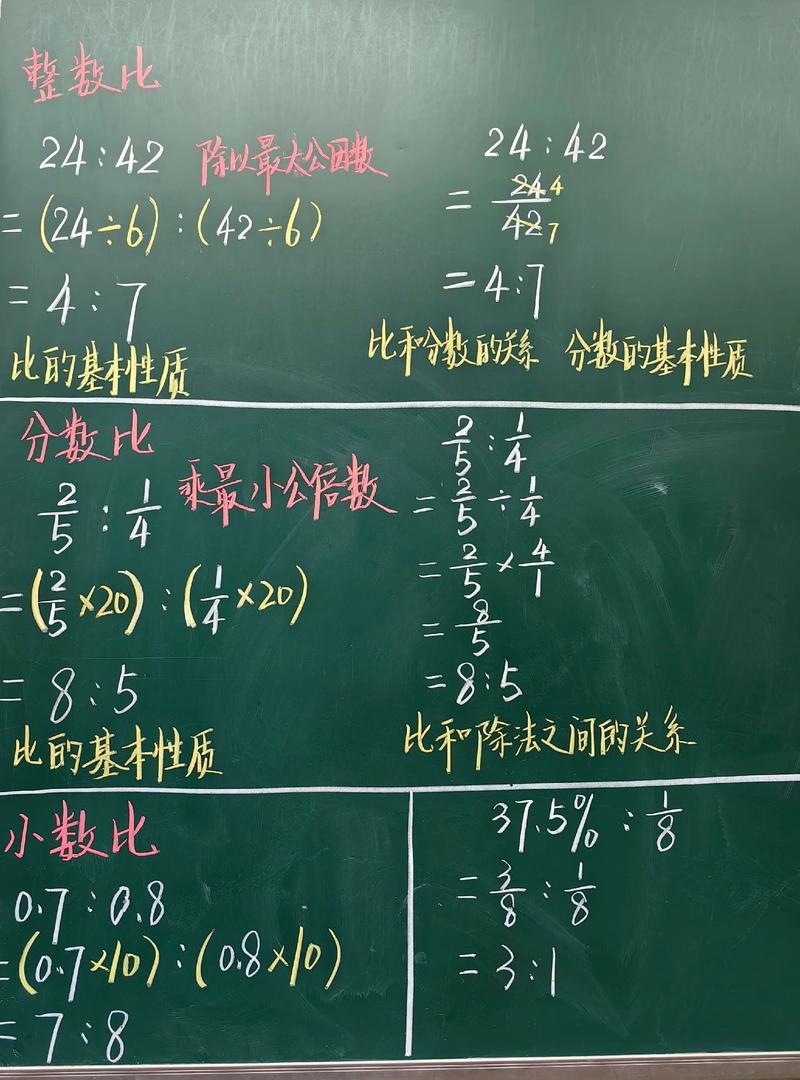 整数比
24:42 除以最大公因数
=(24÷6):(42÷6)
=4:7
比的基本性质
24:42
=24/42 4 7
=4:7
比和分数的关系 分数的基本性质
分数比
2/5:1/4 乘最小公倍数
=(2/5×20):(1/4×20)
=8:5
比的基本性质
2/5:1/4
=2/5÷1/4
=2/5×4/1
=8/5
=8:5
比和除法之间的关系
小数比
0.7:0.8
=(0.7×10):(0.8×10)
=7:8
37.5%:1/8
=3/8:1/8
=3:1